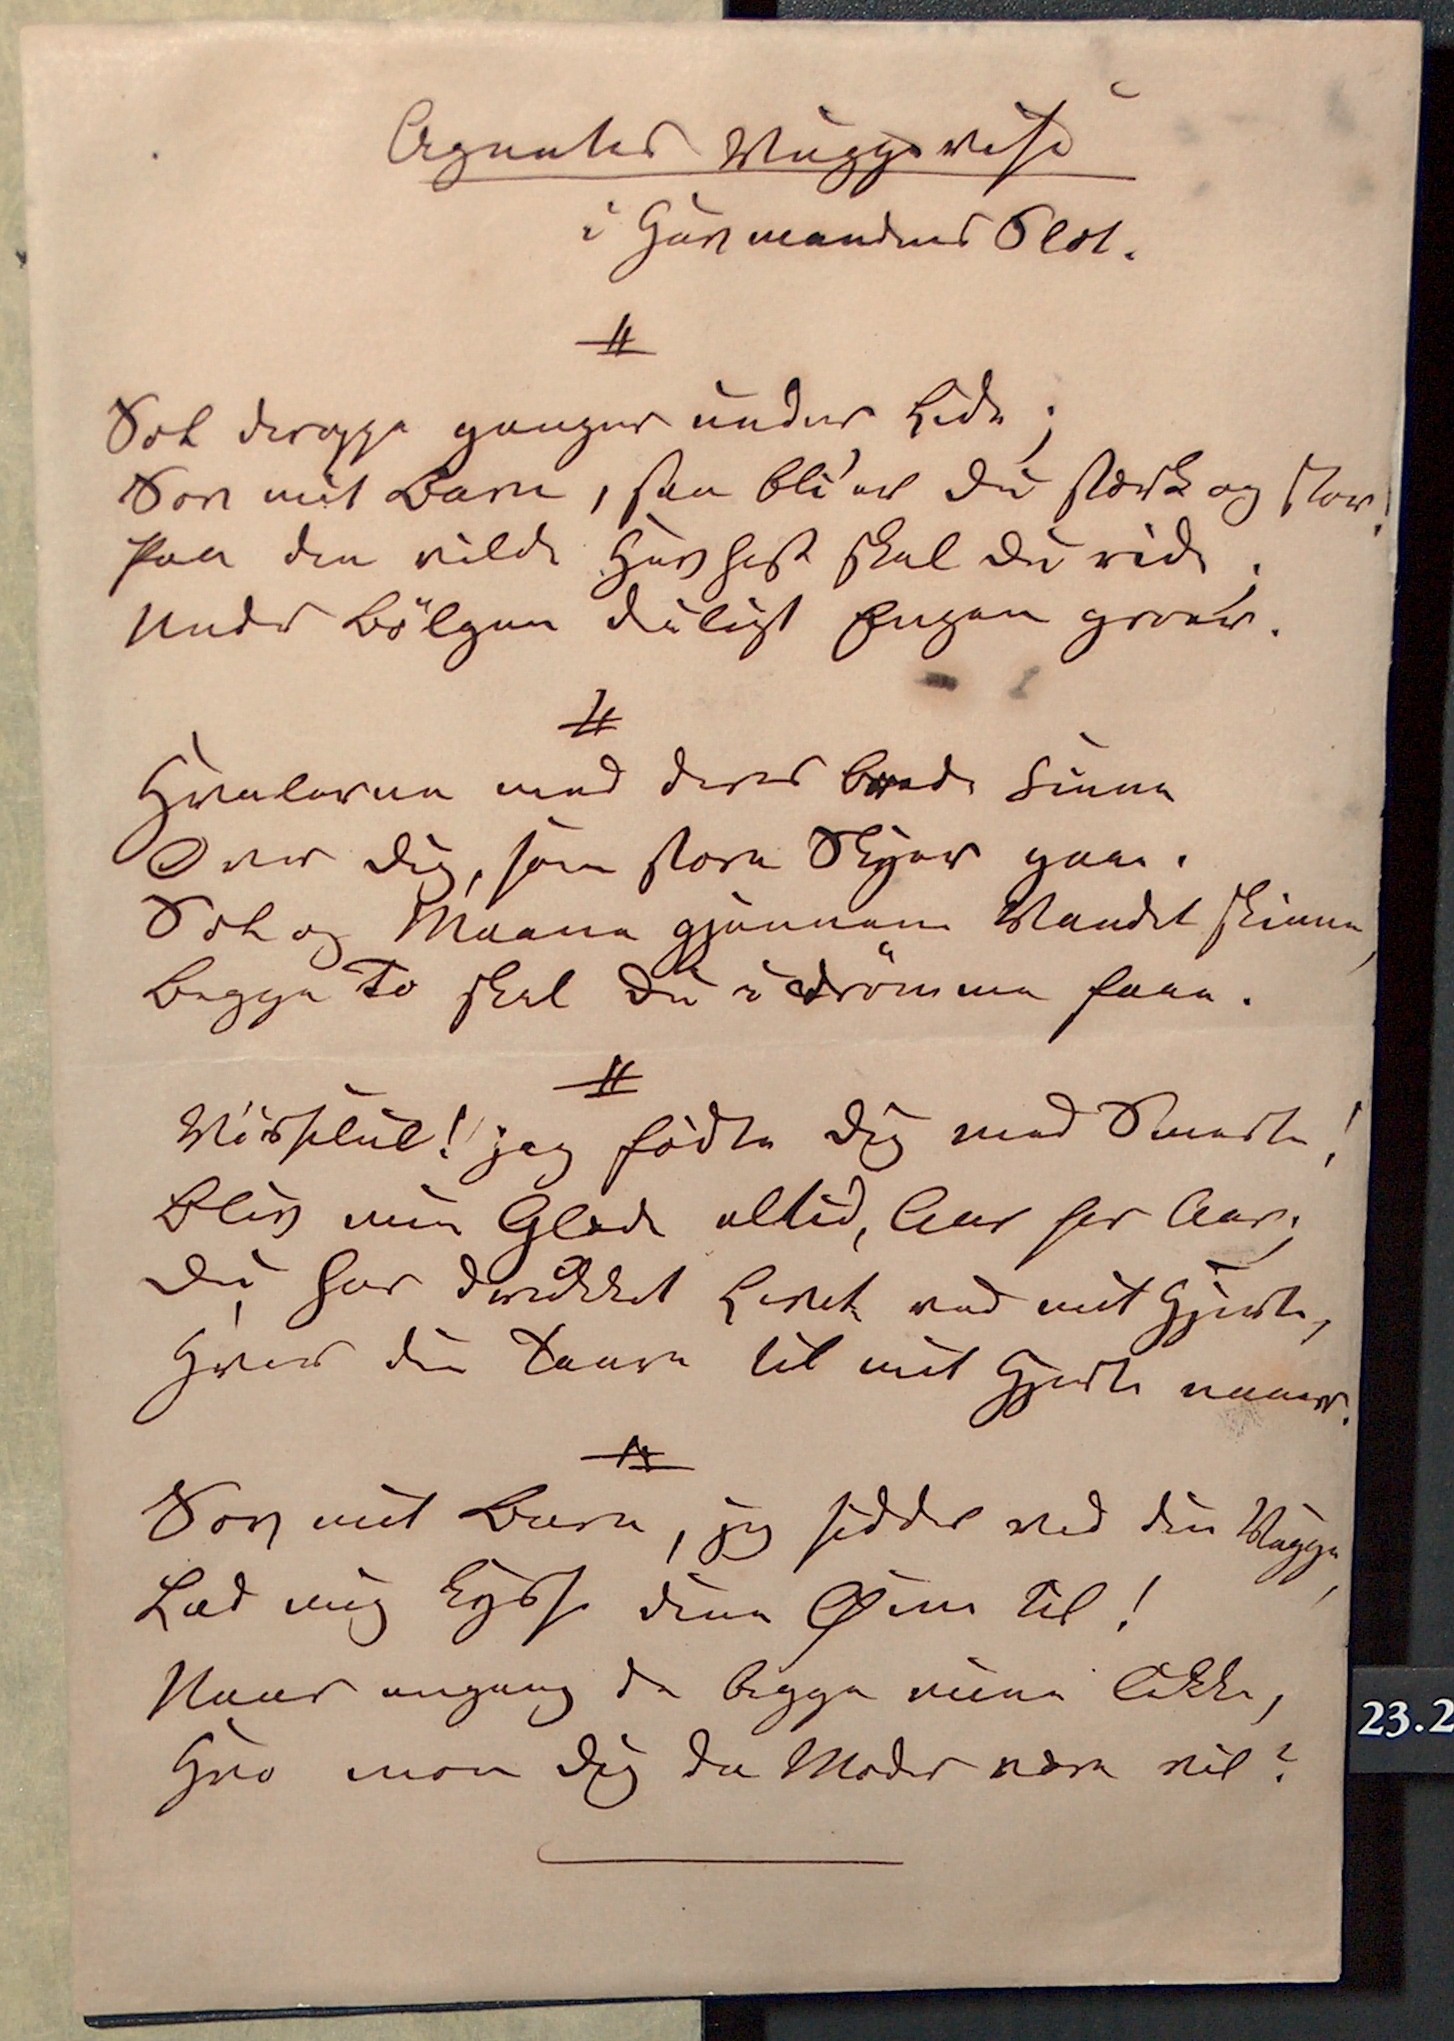 Agnetes Vuggevise
i Havmandens Slot.
Sol deroppe ganger under Lide;
Sov mit Barn, saa bli'er du stærk og stor!
Paa den vilde Havhest skal du ride;
Under Bölgen deiligst Engen groer.
Hvalerne med deres brede Finne
Over dig, som store Skyer gaae.
Sol og Maane gjennem Vandet skinne,
Begge To skal du i Drömme faae.
Visselul! jeg födte dig med Smerte!
Bliv min Glæde altid, Aar for Aar;
Du har drukket Livet ved mit Hjerte,
Hver din Taare til mit Hjerte naaer.
Sov mit Barn, jeg sidder ved din Vugge,
Lad mig kysse dine Øine til!
Naar engang de begge mine lukke,
Hvo mon dig da Moder være vil?
23.2